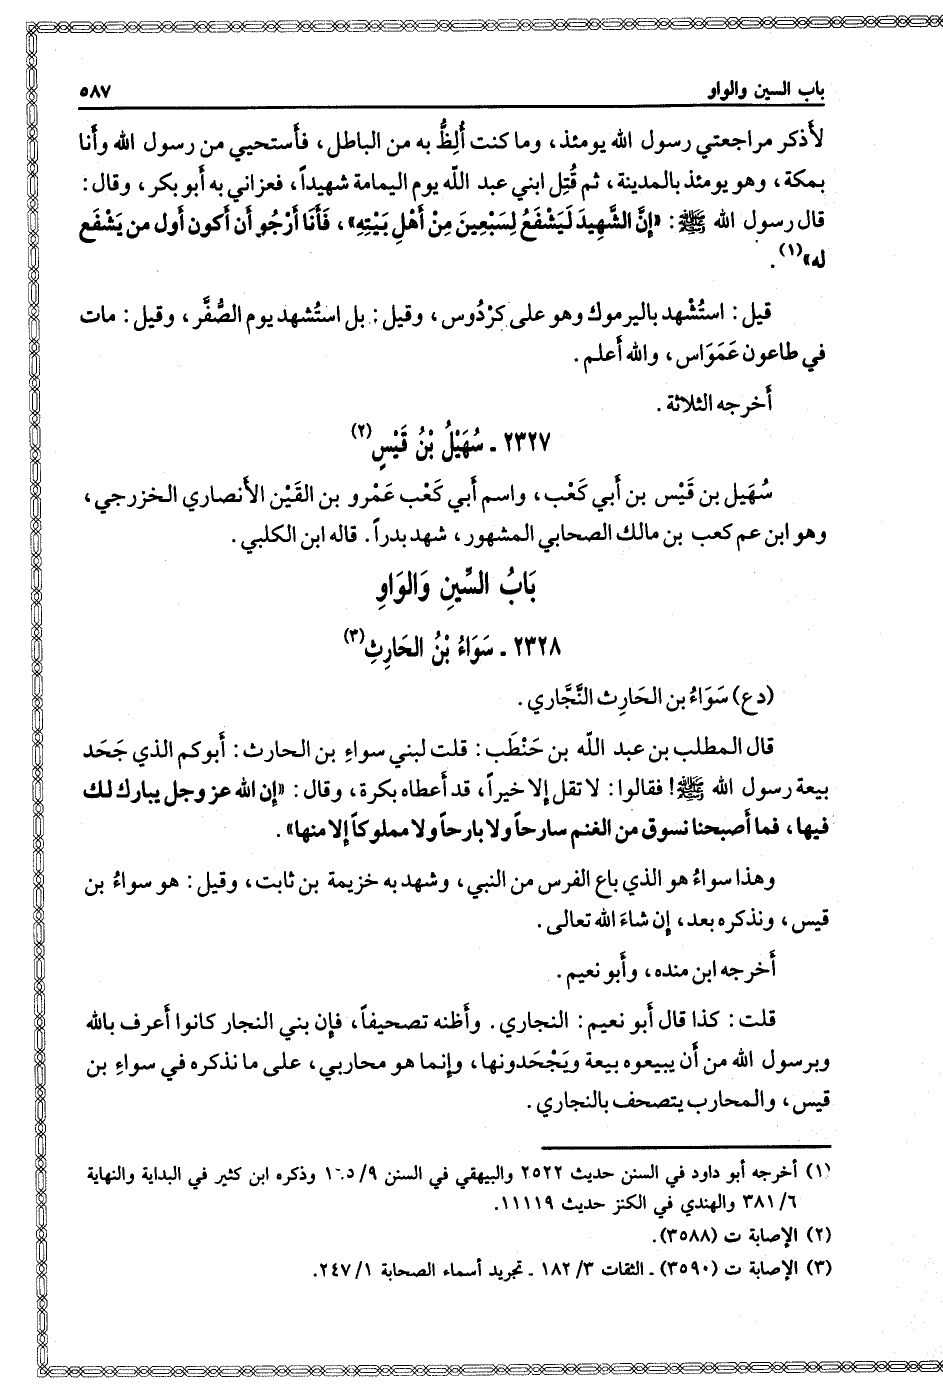 باب السين والواو ٥٨٧
لأذكر مراجعتي رسول الله يومئذ، وما كنت أُلِظُّ به من الباطل، فأستحيي من رسول الله وأنا
بمكة، وهو يومئذ بالمدينة، ثم قُتِل ابني عبد اللّه يوم اليمامة شهيداً، فعزاني به أبو بكر، وقال:
قال رسول الله ﷺ: «إنَّ الشَّهِيدَ لَيَشْفَعُ لِسَبْعِينَ مِنْ أَهْلِ بَيْتِهِ»، فَأَنَا أَرْجُو أَنْ أكون أول من يَشْفَع
له»(١).
قيل: استُشْهد باليرموك وهو على كرْدُوس، وقيل: بل استُشهد يوم الصُّفَّر، وقيل: مات
في طاعون عَمَوَاس، والله أعلم.
أخرجه الثلاثة.
٢٣٢٧ ـ سُهَيْلُ بْنُ قَيْسٍ(٢)
سُهَيل بن قَيْس بن أبي كَعْب، واسم أبي كَعْب عَمْرو بن القَيْن الأنصاري الخزرجي،
وهو ابن عم كعب بن مالك الصحابي المشهور، شهد بدراً. قاله ابن الكلبي.
بَابُ السِّينِ وَالوَاوِ
٢٣٢٨ ـ سَوَاءُ بْنُ الحَارِثِ(٣)
(دع) سَوَاءُ بن الحَارِث النَّجَّاري.
قال المطلب بن عبد اللّه بن حَنْطَب: قلت لبني سواءِ بن الحارث: أبوكم الذي جَحَد
بيعة رسول الله ﷺ! فقالوا: لا تقل إلا خيراً، قد أعطاه بكرة، وقال: «إن الله عز وجل يبارك لك
فيها، فما أصبحنا نسوق من الغنم سارحاً ولا بارحاً ولا مملوكاً إلا منها».
وهذا سواءُ هو الذي باع الفرس من النبي، وشهد به خزيمة بن ثابت، وقيل: هو سواءُ بن
قيس، ونذكره بعد، إن شاءَ الله تعالى.
أخرجه ابن منده، وأبو نعيم.
قلت: كذا قال أبو نعيم: النجاري. وأظنه تصحيفاً، فإن بني النجار كانوا أعرف بالله
وبرسول الله من أن يبيعوه بيعة ويَجْحَدونها، وإنما هو محاربي، على ما نذكره في سواءِ بن
قيس، والمحارب يتصحف بالنجاري.
(١) أخرجه أبو داود في السنن حديث ٢٥٢٢ والبيهقي في السنن ٩/ ١٦٥ وذكره ابن كثير في البداية والنهاية
٦/ ٣٨١ والهندي في الكنز حديث ١١١١٩.
(٢) الإصابة ت (٣٥٨٨).
(٣) الإصابة ت (٣٥٩٠) ـ الثقات ٣/ ١٨٢ ـ تجريد أسماء الصحابة ١/ ٢٤٧.